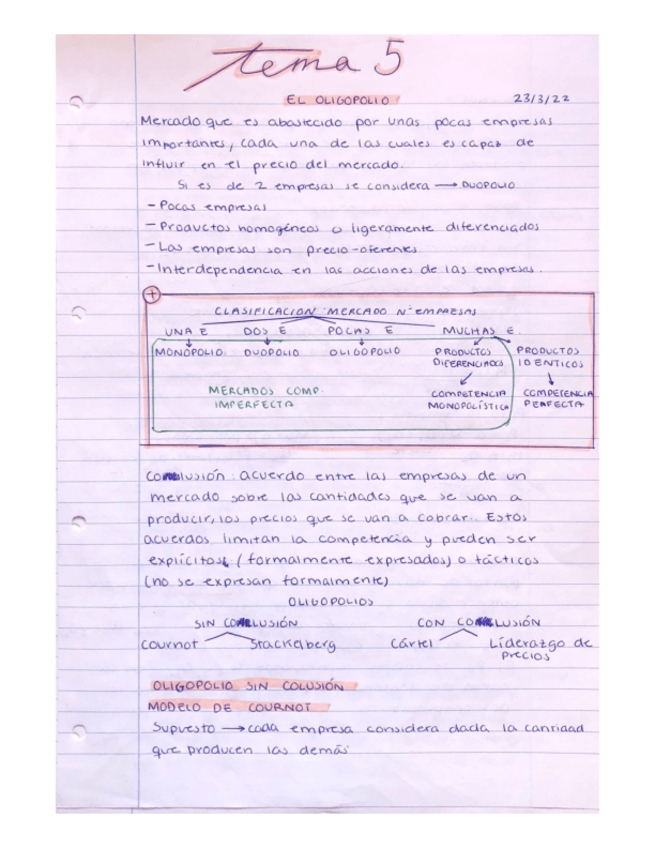 tema 5
EL OLIGOPOLIO 23/3/22
Mercado que es abastecido por unas pocas empresas
importantes, cada una de las cuales es capaz de
influir en el precio del mercado.
Si es de 2 empresas se considera → DUOPOLIO
- Pocas empresas
- Productos homogéneos o ligeramente diferenciados
- Las empresas son precio-oferentes
- Interdependencia en las acciones de las empresas.
+
CLASIFICACION MERCADO Nº EMPRESAS
UNA E DOS E POCAS E MUCHAS E.
MONOPOLIO DUOPOLIO OLIGOPOLIO PRODUCTOS PRODUCTOS
DIFERENCIADOS IDENTICOS
MERCADOS COMP. COMPETENCIA COMPETENCIA
IMPERFECTA MONOPOLÍSTICA PERFECTA
Colusión: acuerdo entre las empresas de un
mercado sobre las cantidades que se van a
producir, los precios que se van a cobrar. Estos
acuerdos limitan la competencia y pueden ser
explícitos (formalmente expresados) o tácticos
(no se expresan formalmente)
OLIGOPOLIOS
SIN COLUSIÓN CON COLUSIÓN
Cournot Stackelberg Cártel Liderazgo de
precios
OLIGOPOLIO SIN COLUSIÓN
MODELO DE COURNOT
Supuesto → cada empresa considera dada la cantidad
que producen las demás